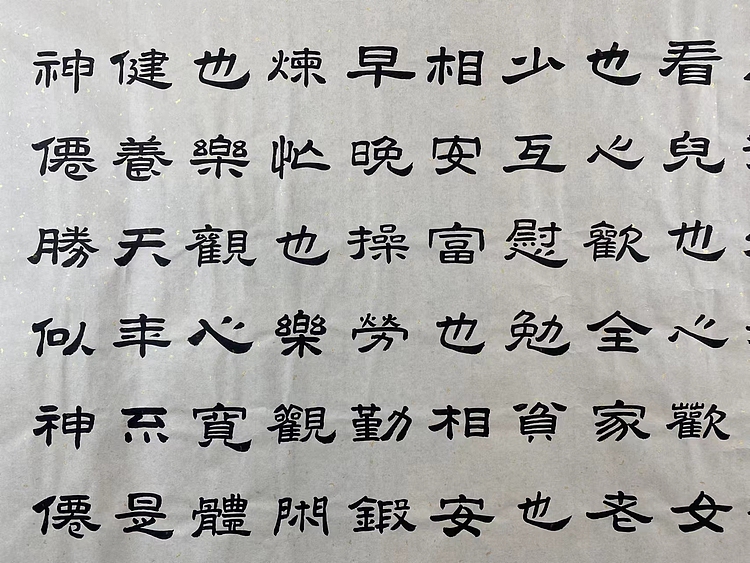 看兒也心歡女
也心歡全家老
少互慰勉貧也
相安富也相安
早晚操勞勤鍛
煉忙也樂觀閑
也樂觀心寬體
健養天年不是
神僊勝似神僊